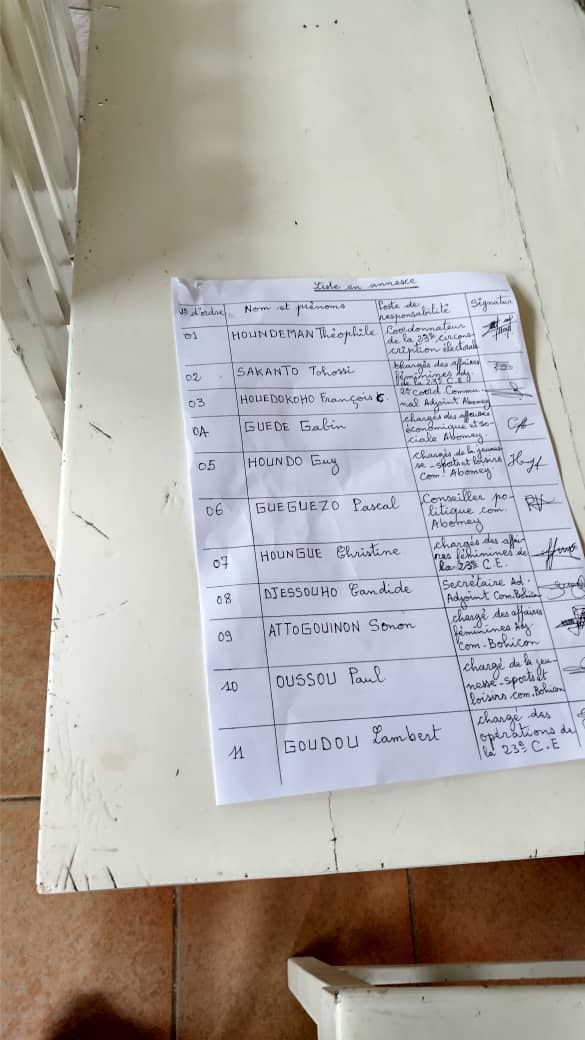 Liste en annexe
N° d'ordre Nom et prénoms Poste de responsabilité Signature
01 HOUNDEMAN Théophile Coordonnateur de la 23e circons-cription électorale
02 SAKANTO Tohossi chargés des affaires féminines Adj de la 23e C.E.
03 HOUEDOKOHO François C. 2e Coord Commu-nal Adjoint Abomey
04 GUEDE Gabin chargés des affaires économique et so-ciale Abomey.
05 HOUNDO Guy chargés de la jeunes-se-sports et loisirs Com. Abomey
06 GUEGUEZO Pascal Conseiller po-litique com. Abomey
07 HOUNGUE Christine chargés des affai-res féminines de la 23e C.E.
08 DJESSOUHO Candide Secrétaire Ad. Adjoint Com.Bohicon
09 ATTOGOUINON Sonon chargé des affaires féminines Adj com-Bohicon
10 OUSSOU Paul chargé de la jeu-nesse-sports et loisirs.com.Bohicon
11 GOUDOU Lambert chargé des opérations de la 23e C.E